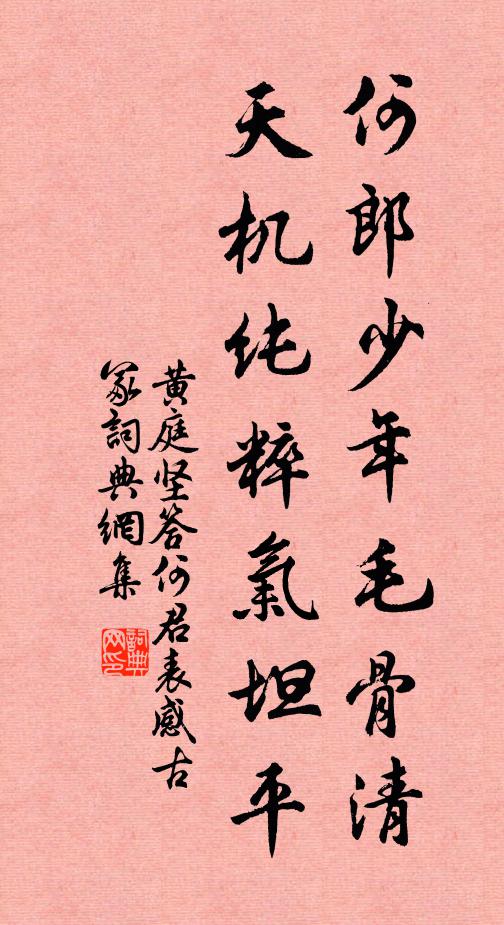 何郎少年毛骨清
天机纯粹氣坦平
黄庭坚答何君表感古
冢詞典網集
詞典网印